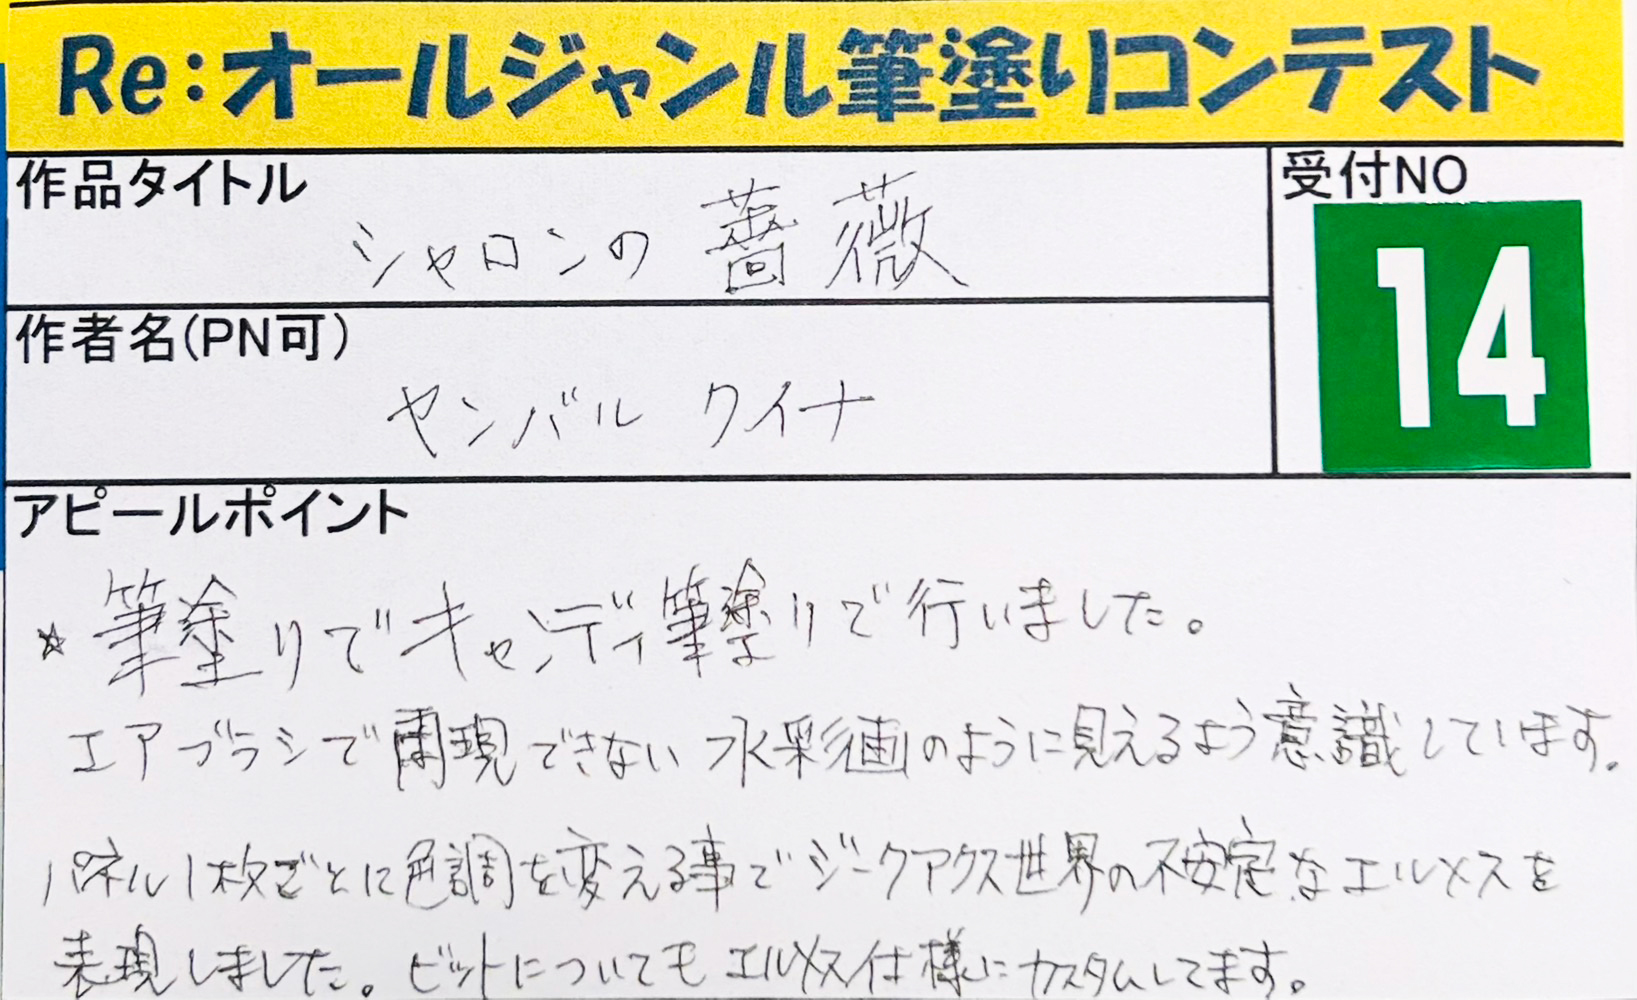 Re:オールジャンル筆塗りコンテスト
作品タイトル
シャロンの薔薇
受付NO
14
作者名(PN可)
ヤンバル クイナ
アピールポイント
☆筆塗りでキャンディ筆塗りで行いました。
エアブラシで再現できない水彩画のように見えるよう意識しています。
パネル1枚ごとに色調を変える事でジークアクス世界の不安定なエルメスを
表現しました。ビットについてもエルメス仕様にカスタムしてます。